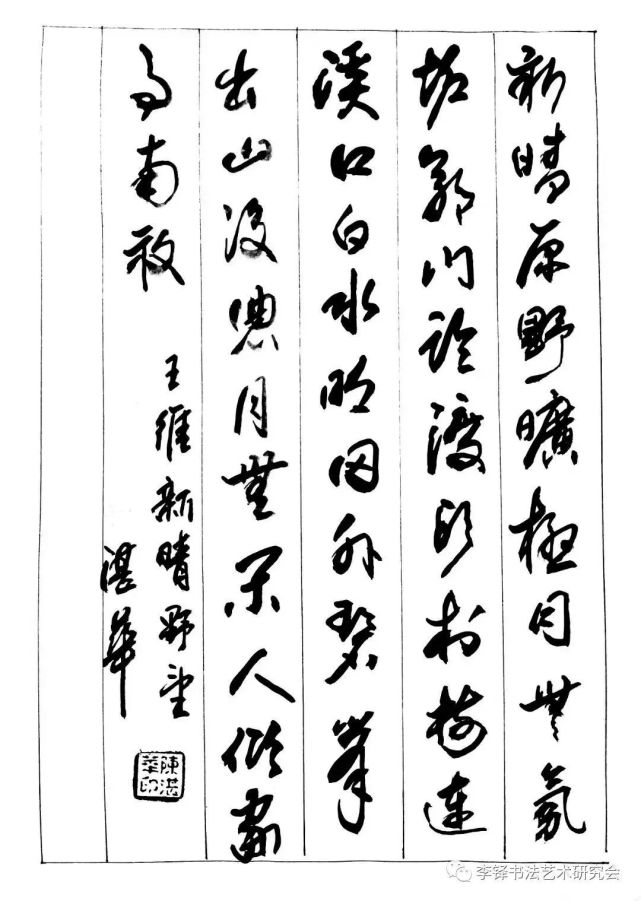 新晴原野曠極目無氛
垢郭門臨渡頭村樹連
溪口白水明田外碧峯
出山後農月無閑人傾家
事南畝
王維新晴野望
湛華
陳湛華印
李铎书法艺术研究会